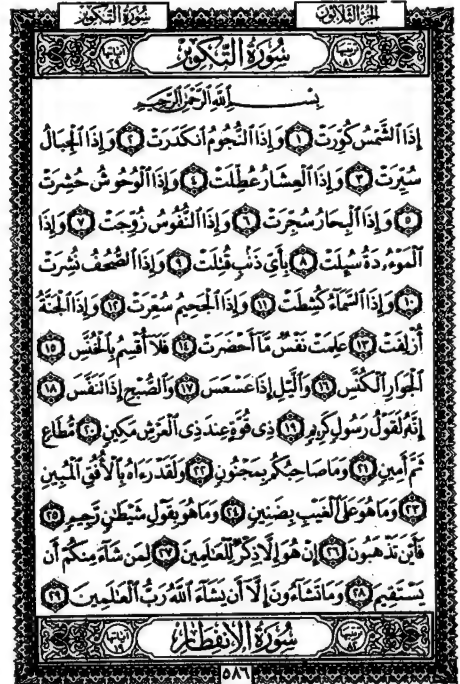 الجزء الثلاثون سورة التكوير
ترتيبها ٨١ سُورَةُ التَّكْوِيرِ آياتها ٢٩
بِسْمِ اللَّهِ الرَّحْمَٰنِ الرَّحِيمِ
إِذَا ٱلشَّمْسُ كُوِّرَتْ ١ وَإِذَا ٱلنُّجُومُ ٱنكَدَرَتْ ٢ وَإِذَا ٱلْجِبَالُ
سُيِّرَتْ ٣ وَإِذَا ٱلْعِشَارُ عُطِّلَتْ ٤ وَإِذَا ٱلْوُحُوشُ حُشِرَتْ
٥ وَإِذَا ٱلْبِحَارُ سُجِّرَتْ ٦ وَإِذَا ٱلنُّفُوسُ زُوِّجَتْ ٧ وَإِذَا
ٱلْمَوْءُۥدَةُ سُئِلَتْ ٨ بِأَيِّ ذَنۢبٍ قُتِلَتْ ٩ وَإِذَا ٱلصُّحُفُ نُشِرَتْ
١٠ وَإِذَا ٱلسَّمَآءُ كُشِطَتْ ١١ وَإِذَا ٱلْجَحِيمُ سُعِّرَتْ ١٢ وَإِذَا ٱلْجَنَّةُ
أُزْلِفَتْ ١٣ عَلِمَتْ نَفْسٌ مَّآ أَحْضَرَتْ ١٤ فَلَآ أُقْسِمُ بِٱلْخُنَّسِ ١٥
ٱلْجَوَارِ ٱلْكُنَّسِ ١٦ وَٱلَّيْلِ إِذَا عَسْعَسَ ١٧ وَٱلصُّبْحِ إِذَا تَنَفَّسَ ١٨
إِنَّهُۥ لَقَوْلُ رَسُولٍ كَرِيمٍ ١٩ ذِى قُوَّةٍ عِندَ ذِى ٱلْعَرْشِ مَكِينٍ ٢٠ مُّطَاعٍ
ثَمَّ أَمِينٍ ٢١ وَمَا صَاحِبُكُم بِمَجْنُونٍ ٢٢ وَلَقَدْ رَءَاهُ بِٱلْأُفُقِ ٱلْمُبِينِ
٢٣ وَمَا هُوَ عَلَى ٱلْغَيْبِ بِضَنِينٍ ٢٤ وَمَا هُوَ بِقَوْلِ شَيْطَٰنٍ رَّجِيمٍ ٢٥
فَأَيْنَ تَذْهَبُونَ ٢٦ إِنْ هُوَ إِلَّا ذِكْرٌ لِّلْعَٰلَمِينَ ٢٧ لِمَن شَآءَ مِنكُمْ أَن
يَسْتَقِيمَ ٢٨ وَمَا تَشَآءُونَ إِلَّآ أَن يَشَآءَ ٱللَّهُ رَبُّ ٱلْعَٰلَمِينَ ٢٩
ترتيبها ٨٢ سُورَةُ الانفِطَارِ آياتها ١٩
٥٨٦